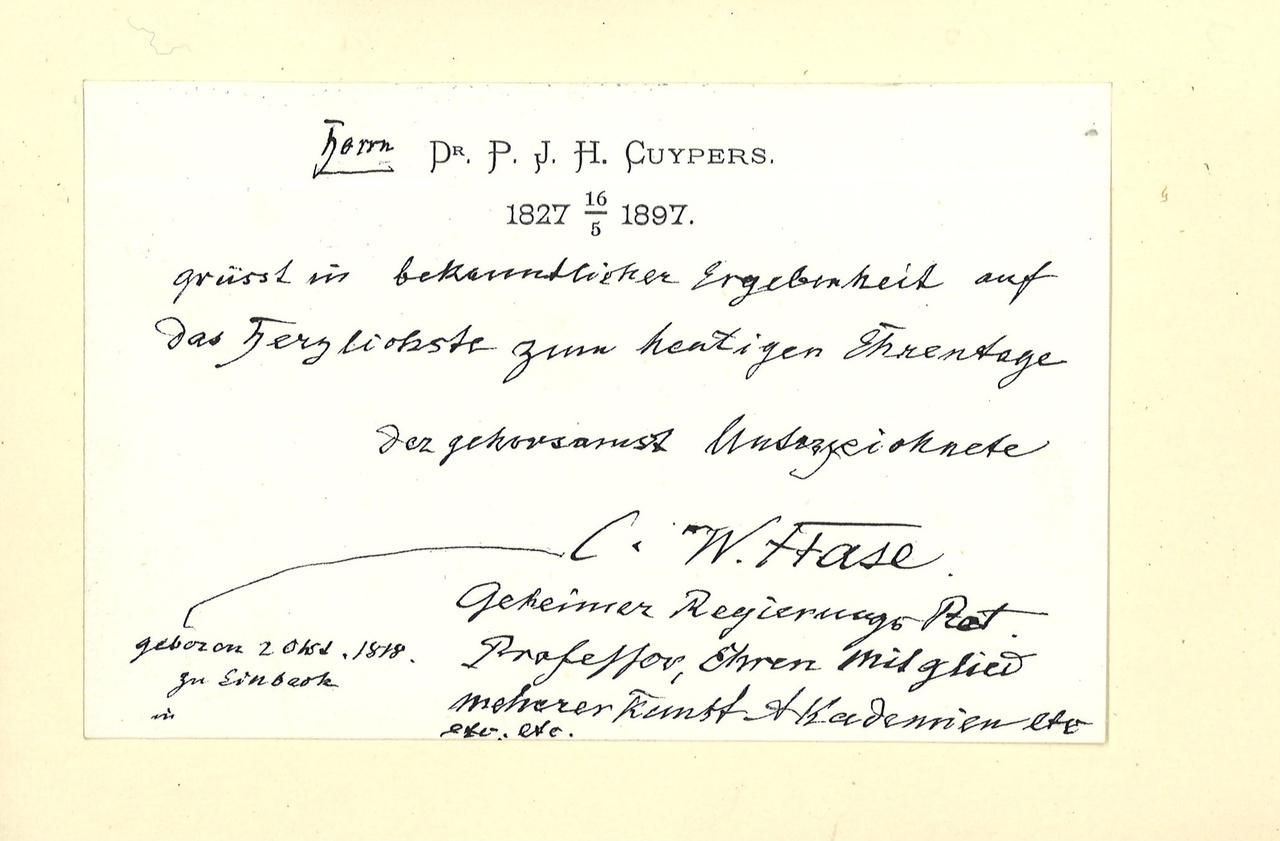 Herrn DR. P. J. H. CUYPERS.
1827 16/5 1897.
grüsst in bekanntlicher Ergebenheit auf
das Herzlichste zum heutigen Ehrentage
der gehorsamst Unterzeichnete
C. W. Hase.
Geheimer Regierungs Rat.
Professor, Ehren Mitglied
mehrerer Kunst Akademien etc
etc. etc.
geboren 2 Okt. 1818.
zu Einbeck
in